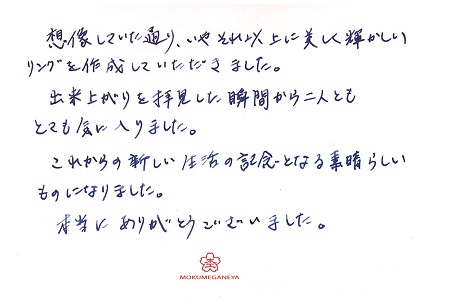 想像していた通り、いやそれ以上に美しく輝かしい
リングを作成していただきました。
出来上がりを拝見した瞬間から二人とも
とても気に入りました。
これからの新しい生活の記念となる素晴らしい
ものになりました。
本当にありがとうございました。
MOKUMEGANEYA